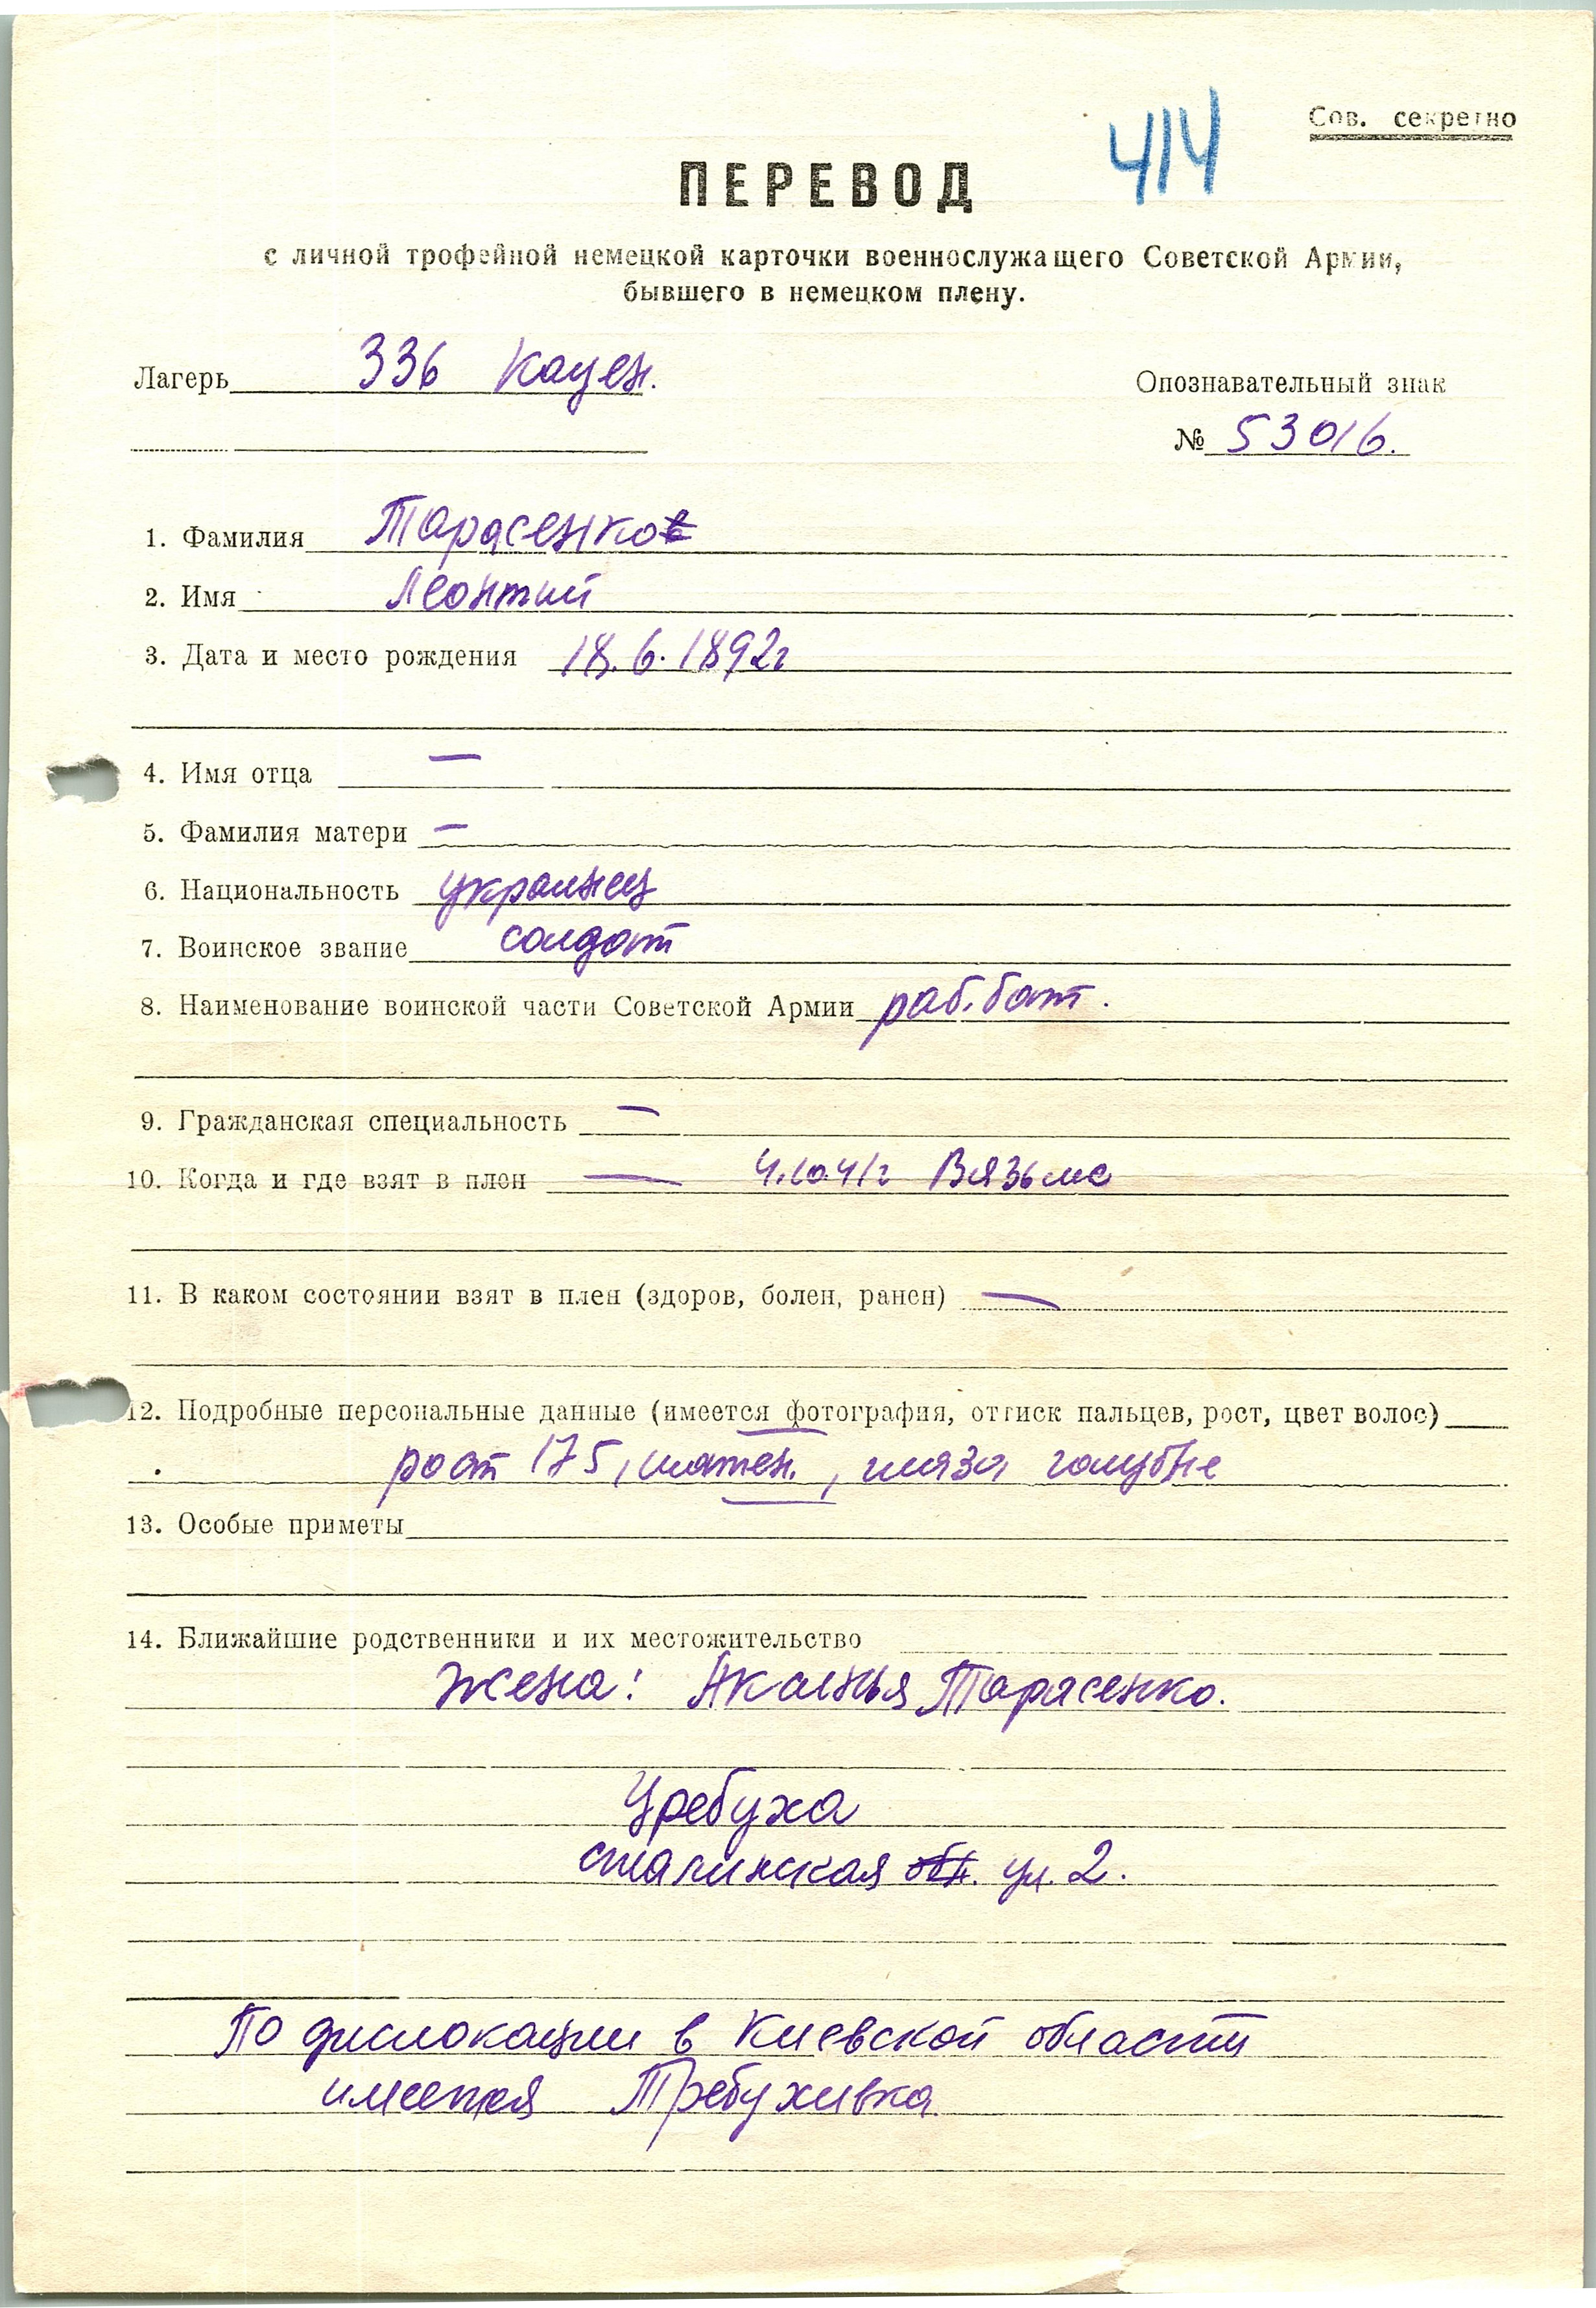 414
Сов. секретно
ПЕРЕВОД
с личной трофейной немецкой карточки военнослужащего Советской Армии,
бывшего в немецком плену.
Лагерь 336 Кауен.
Опознавательный знак
№ 53016.
1. Фамилия Тарасенков
2. Имя Леонтий
3. Дата и место рождения 18.6.1892г
4. Имя отца —
5. Фамилия матери —
6. Национальность украинец
7. Воинское звание солдат
8. Наименование воинской части Советской Армии раб. бат.
9. Гражданская специальность —
10. Когда и где взят в плен — 4.10.41г Вязьме
11. В каком состоянии взят в плен (здоров, болен, ранен) —
12. Подробные персональные данные (имеется фотография, оттиск пальцев, рост, цвет волос)
рост 175, шатен, глаза голубые
13. Особые приметы
14. Ближайшие родственники и их местожительство
жена: Акалнья Тарасенко.
Уребуха
сталинская обл. ул. 2.
По дислокации в Киевской области
имеется Требуживка